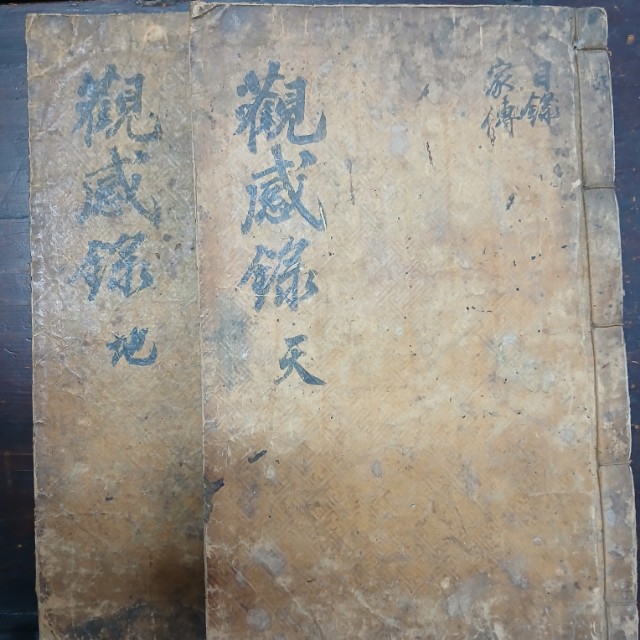 目錄
家傳
觀感錄 天
觀感錄 地